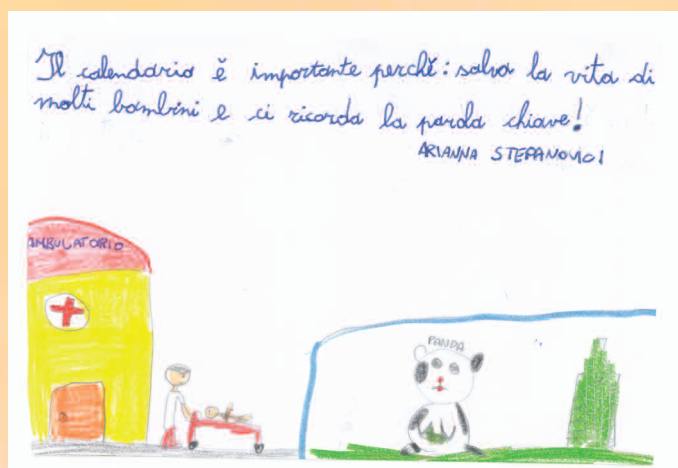 Il calendario è importante perchè: salva la vita di
molti bambini e ci ricorda la parola chiave!
ARIANNA STEFANOVICI
AMBULATORIO
PANDA